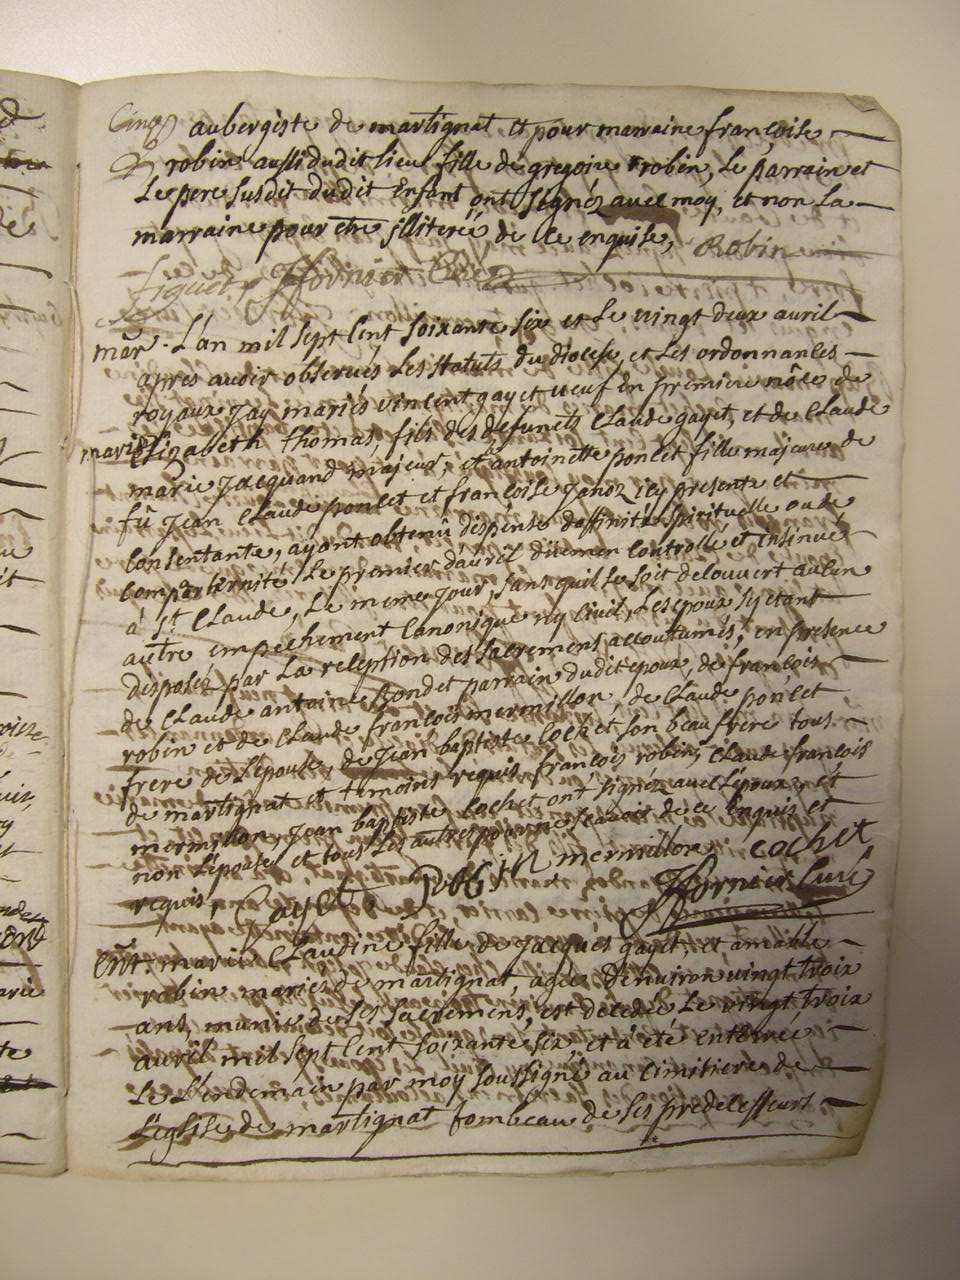 Cinq aubergiste de martignat et pour marraine françoise
robin aussi dudit lieu fille de gregoire robin, Le parrain et
Le pere susdit dudit Enfant ont signéz avec moy, et non La
marraine pour etre illiterée de ce enquise, Robin
figuet Hornier Curé
mar. L'an mil sept cent soixante six et Le vingt deux avril
apres avoir observés Les statuts du diocese, et Les ordonnances
royaux jay mariés vincent gayet veuf en premiere nôces de
mariè Elizabeth thomas, fils des defunts Claude gayet, et de Claude
marie jacquand majeur, et antoinette poncet fille majeure de
fû jean Claude poncet et françoise janoz icy presente et
Consentante, ayant obtenû dispense d'affinité spirituelle ou de
Compaternité Le premier d'avril dûemen Controllé et insinué
à St. Claude, Le meme jour, sans quil se soit decouvert aucun
autre empechement Canonique ny Civil, Les epoux sy etant
disposéz par La reception des sacremens accoutumés, en presence
de Claude antoine Gondet parrain dudit epoux, de françois
robin et de Claude françois mermillon, de Claude poncet
frere de L'epouse, de jean baptiste Cochet son beau frere tous
de martignat et temoins requis, françois robin, Claude françois
mermillon, jean baptiste Cochet ont signéz avec L'epoux, et
non L'epouse et tous Les autres pour ne scavoir de ce Enquis et
requis, Gayet Robin mermillon cochet
Hornier Curé
Ent. marie Claudine fille de jacques gayet, et amable
robin mariez de martignat, agée d'environ vingt trois
ans, munie de ses sacremens, est decedée Le vingt trois
avril mil sept cent soixante six, et à eté enterrée
Le L'endemain par moy soussigné au cimitiere de
L'eglise de martignat tombeau de ses predecesseurs